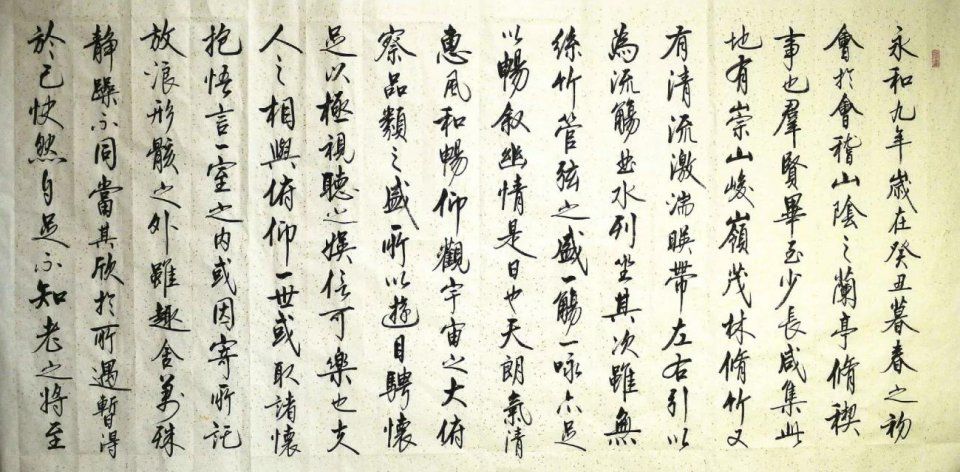 永和九年歲在癸丑暮春之初
會於會稽山陰之蘭亭脩禊
事也羣賢畢至少長咸集此
地有崇山峻嶺茂林脩竹又
有清流激湍暎帶左右引以
為流觴曲水列坐其次雖無
絲竹管弦之盛一觴一咏亦足
以暢叙幽情是日也天朗氣清
惠風和暢仰觀宇宙之大俯
察品類之盛所以遊目騁懷
足以極視聽之娛信可樂也夫
人之相與俯仰一世或取諸懷
抱悟言一室之內或因寄所託
放浪形骸之外雖趣舍萬殊
静躁不同當其欣於所遇暫得
於己快然自足不知老之將至